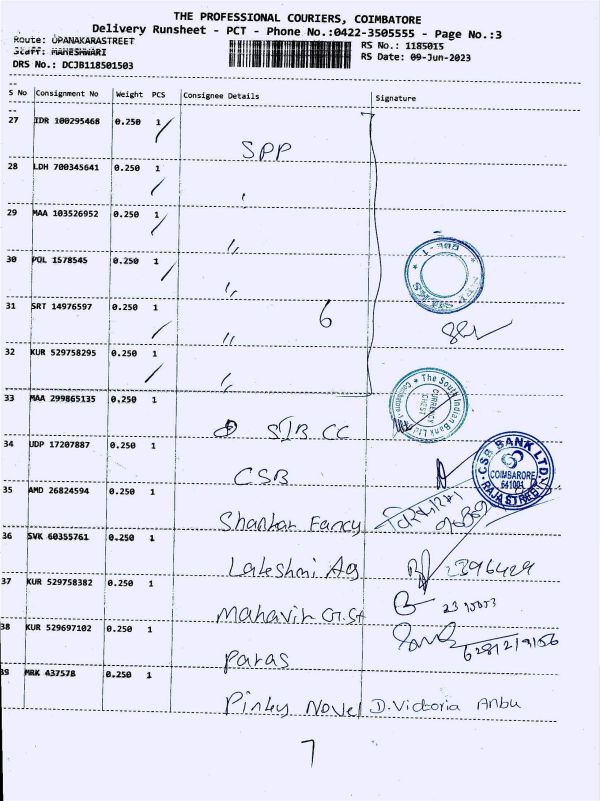 THE PROFESSIONAL COURIERS, COIMBATORE
Delivery Runsheet - PCT - Phone No.:0422-3505555 - Page No.:3
Route: UPANAKARASTREET
Staff: MAHESHWARI
DRS No.: DCJB118501503
RS No.: 1185015
RS Date: 09-Jun-2023
S No Consignment No Weight PCS Consignee Details Signature
27 IDR 100295468 0.250 1 SPP
28 LDH 700345641 0.250 1
29 MAA 103526952 0.250 1 "
30 POL 1578545 0.250 1 "
31 SRT 14976597 0.250 1 " 6
32 KUR 529758295 0.250 1 "
33 MAA 299865135 0.250 1 SIB CC
The South Indian Bank Ltd
CURRENCY CHEST
34 UDP 17207887 0.250 1 CSB
CSB BANK LTD
COIMBARORE
641001
RAJA STREET
35 AMD 26824594 0.250 1 Shankar Fancy
36 SVK 60355761 0.250 1 Lakeshmi Ag 2396429
37 KUR 529758382 0.250 1 Mahavir G.St
38 KUR 529697102 0.250 1 Paras 6281219156
39 MRK 437578 0.250 1 Pinky Novel D. Victoria Anbu
7